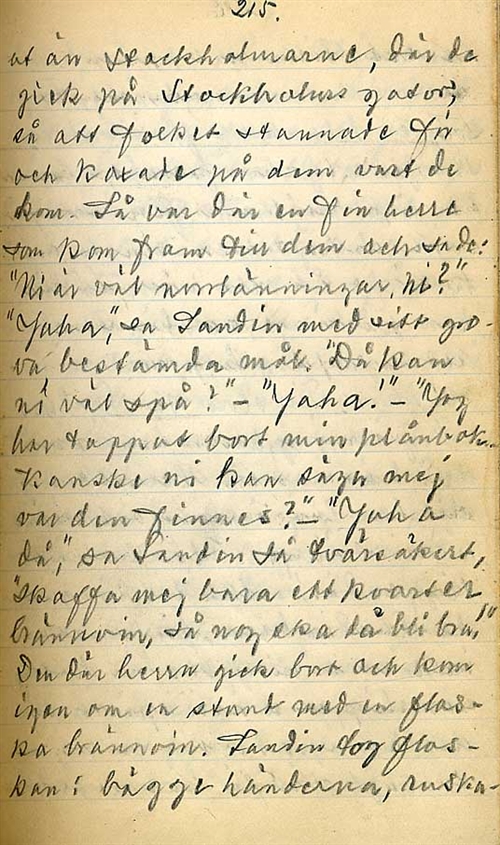 215.
ut än Stockholmarne, där de
gick på Stockholms gator,
så att folket stannade för
och koxade på dem vart de
kom. Så var där en fin herre
som kom fram till dem och sade:
"Ni är väl norrlänningar, ni?"
"Jaha", sa Landin med sitt gro-
va bestämda mål. "Då kan
ni väl spå?" – "Jaha!" – "Jag
har tappat bort min plånbok.
Kanske ni kan säga mej
var den finnes?" – "Jaha
då," sa Landin så tvärsäkert,
"skaffa mej bara ett kvarter
brännvin, så nog ska dä bli bra!"
Den där herrn gick bort och kom
igen om en stund med en flas-
ka brännvin. Landin tog flas-
kan i bägge händerna, ruska-